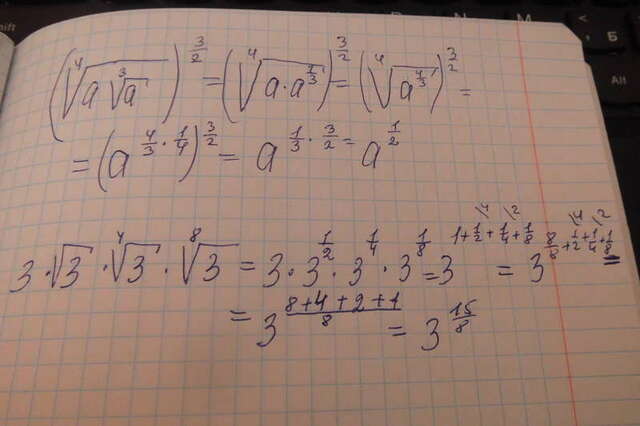 (∜(a ∛a))^(3/2) = (∜(a·a^(1/3)))^(3/2) = (∜(a^(4/3)))^(3/2) =
= (a^(4/3·1/4))^(3/2) = a^(1/3·3/2) = a^(1/2)
3·√3·∜3·⁸√3 = 3·3^(1/2)·3^(1/4)·3^(1/8) = 3^(1+1/2+1/4+1/8) = 3^(8/8+1/2+1/4+1/8) =
= 3^((8+4+2+1)/8) = 3^(15/8)